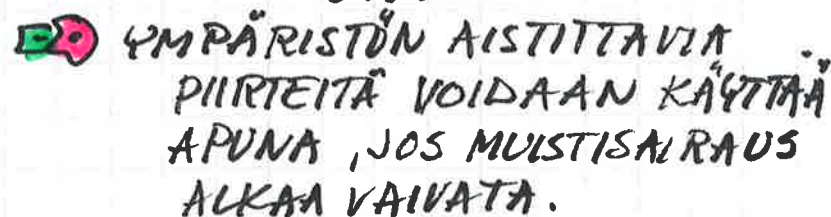 YMPÄRISTÖN AISTITTAVIA
PIIRTEITÄ VOIDAAN KÄYTTÄÄ
APUNA, JOS MUISTISAIRAUS
ALKAA VAIVATA.